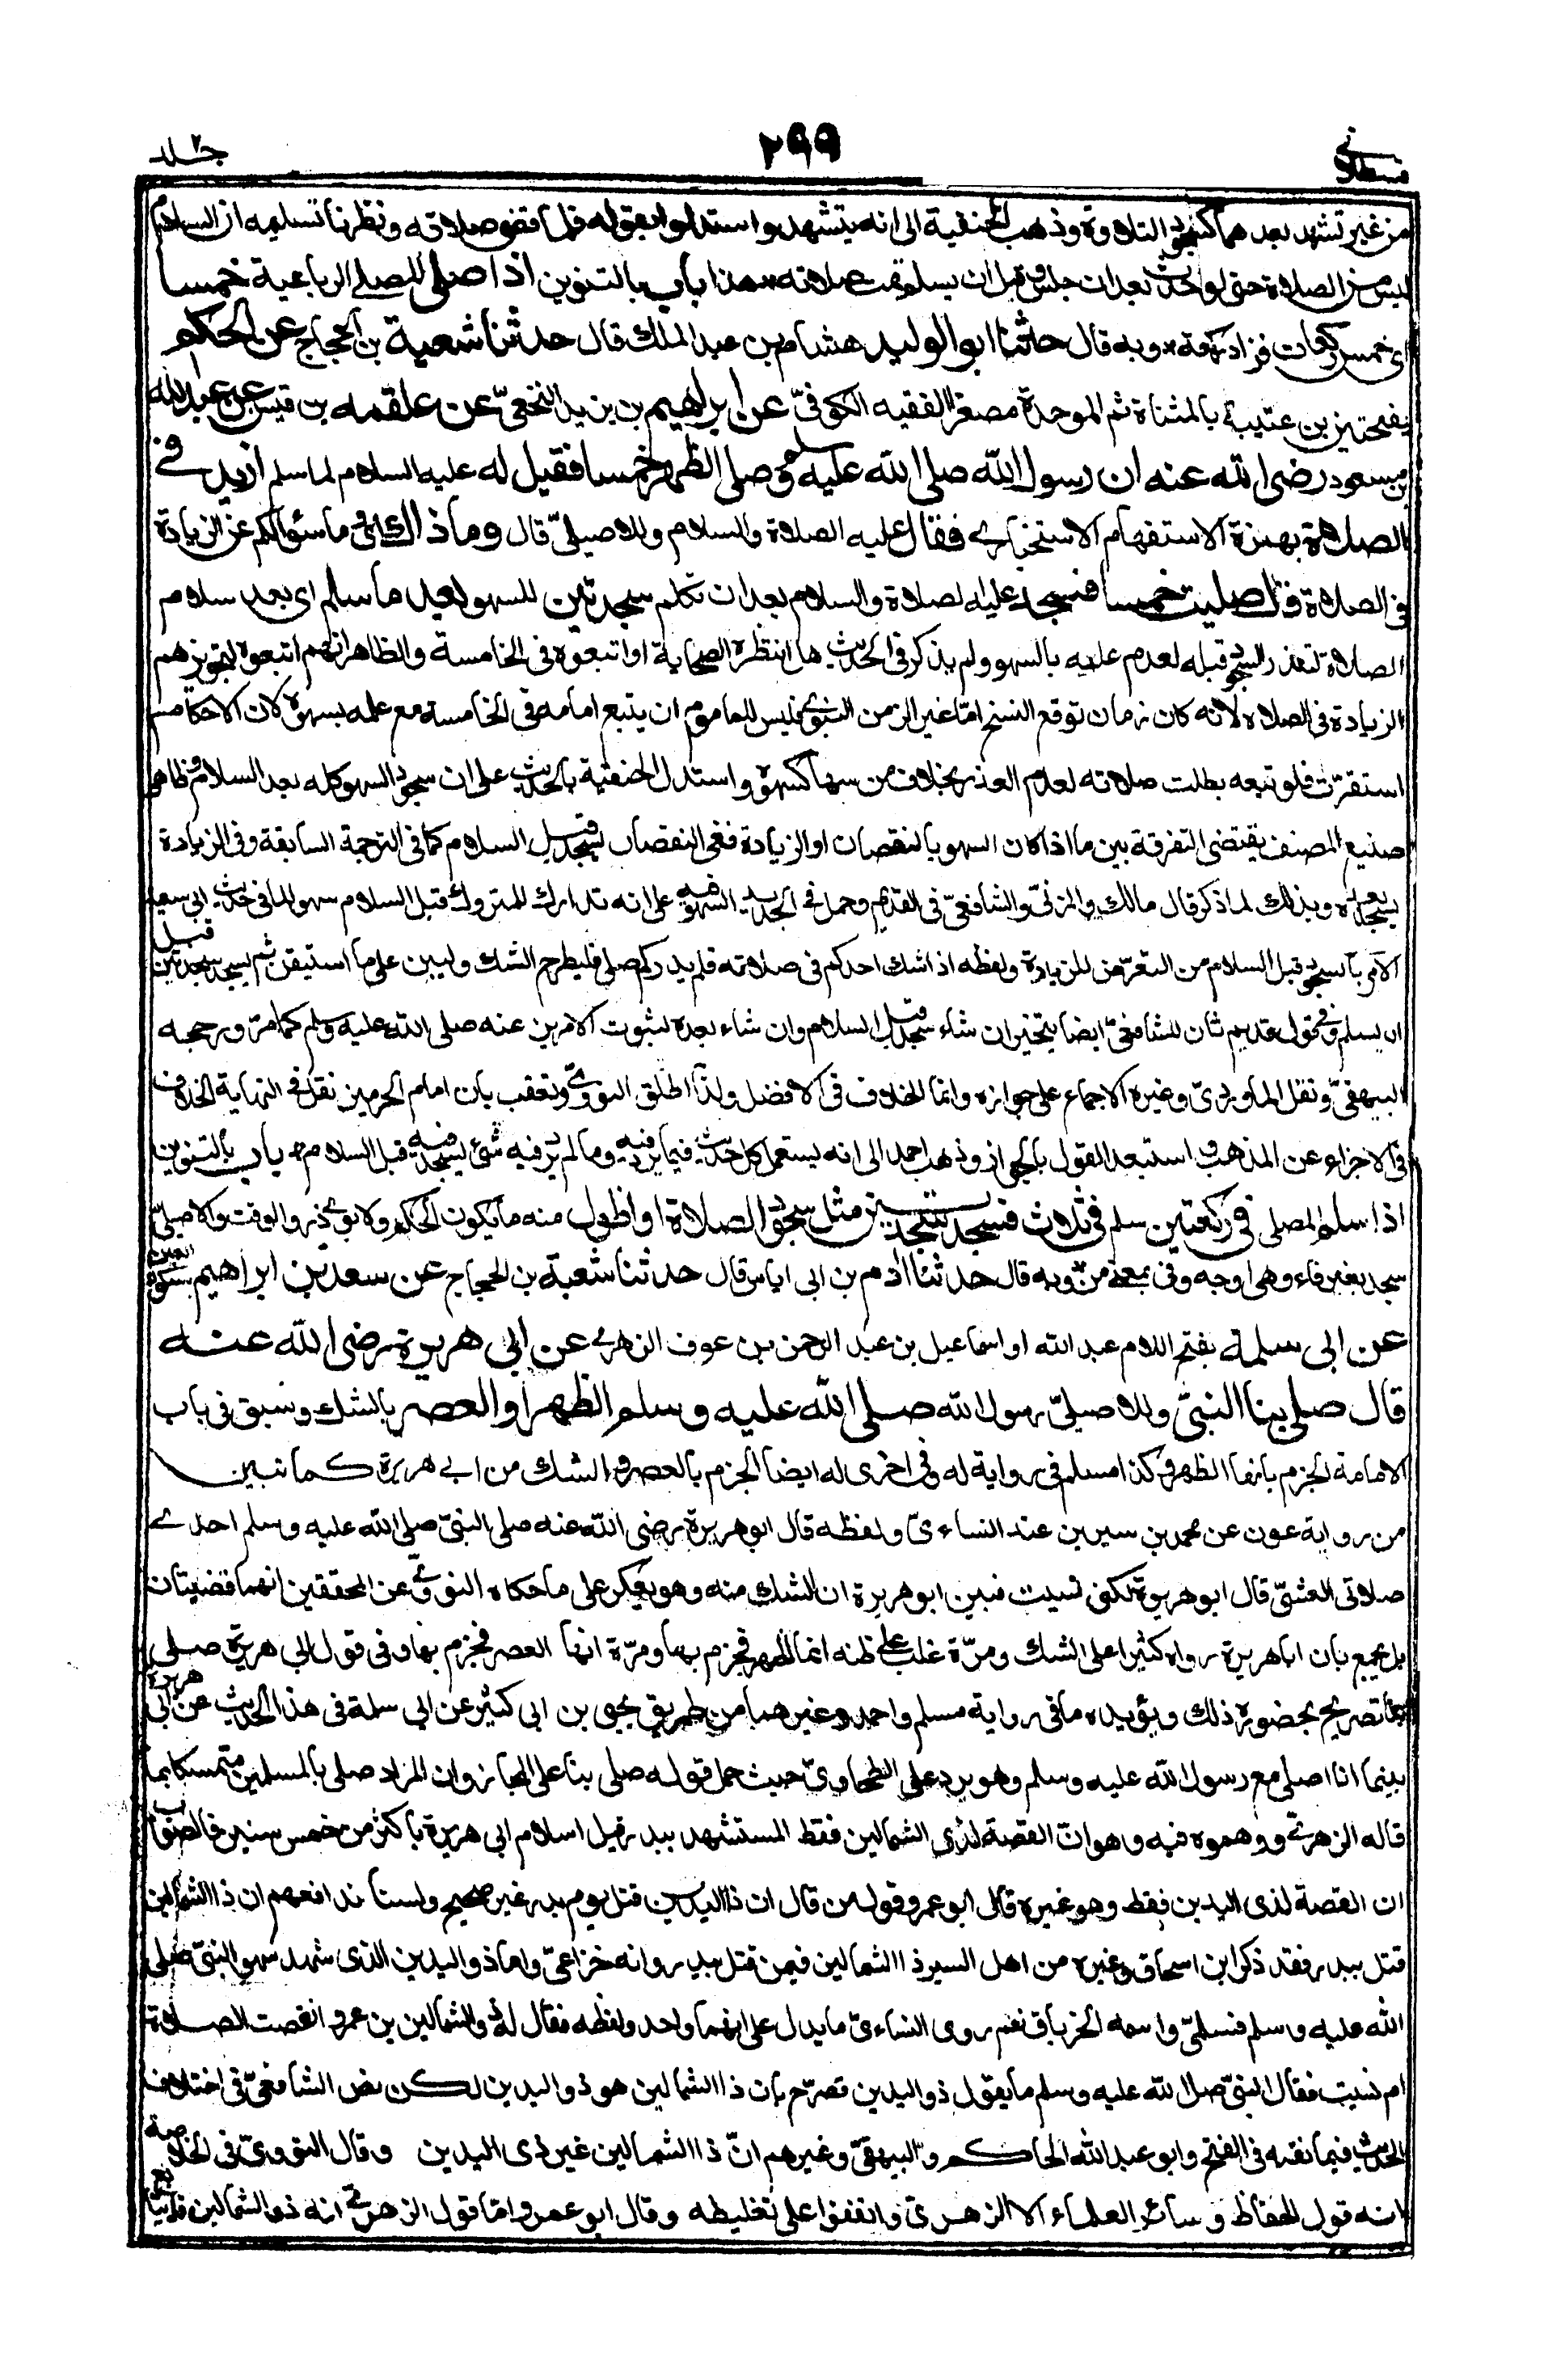 قسطلانی ٢٩٩ جلد ٢
من غير تشهد بعدهما كسجود التلاوة وذهب الحنفية الى انه يتشهد واستدلوا بقوله فلما قضى صلاته ونظرنا تسليمه ان السلام
ليس من الصلاة حتى لو احدث بعد ان جلس وقبل ان يسلم تمت صلاته هذا باب بالتنوين اذا صلى المصلى الرباعية خمسا
اى خمس ركعات فزاد ركعة وبه قال حدثنا ابو الوليد هشام بن عبد الملك قال حدثنا شعبة بن الحجاج عن الحكم
بفتحتين بن عتيبة بالمثناة ثم الموحدة مصغرا الفقيه الكوفىّ عن ابراهيم بن يزيد النخعىّ عن علقمه بن قيس عن عبد الله
بن مسعود رضى الله عنه ان رسول الله صلى الله عليه وسلم صلى الظهر خمسا فقيل له عليه السلام لما سلم ازيد فى
الصلاة بهمزة الاستفهام الاستخبارى فقال عليه الصلاة والسلام وللاصيلىّ قال وما ذاك اى ما سؤالكم عن الزيادة
فى الصلاة قال صليت خمسا فسجد عليه الصلاة والسلام بعد ان تكلم سجدتين للسهو بعد ما سلم اى بعد سلام
الصلاة لتعذر السجود قبله لعدم علمه بالسهو ولم يذكر فى الحديث هل انتظره الصحابة او اتبعوه فى الخامسة والظاهر انهم اتبعوه لتجويزهم
الزيادة فى الصلاة لانه كان زمان توقع النسخ امّا غير الزمن النبوى فليس للماموم ان يتبع امامه فى الخامسة مع علمه بسهوه لان الاحكام
استقرّت فلو تبعه بطلت صلاته لعدم العذر بخلاف من سها كسهوه واستدل الحنفية بالحديث على ان سجود السهو كله بعد السلام وظاهر
صنيع المصنف يقتضى التفرقة بين ما اذا كان السهو بالنقصان او الزيادة ففى النقصان يسجد قبل السلام كما فى الترجمة السابقة وفى الزيادة
يسجد بعده وبذلك لما ذكر قال مالك والمزنىّ والشافعىّ فى القديم وحمل فى الجديد السهو فيه على انه تدارك للمتروك قبل السلام سهوا لما فى حديث ابى سعيد
الآمر بالسجود قبل السلام من التعرّض للزيادة ولفظه اذا شك احدكم فى صلاته فلم يدر كم صلى فليطرح الشك وليبن على ما استيقن ثم يسجد سجدتين قبل
ان يسلم وفى قول قديم ثان للشافعىّ ايضا يتخير ان شاء سجد قبل السلام وان شاء بعده لثبوت الامرين عنه صلى الله عليه وسلم كما مرّ ورجحه
البيهقىّ ونقل الماوردىّ وغيره الاجماع على جوازه وانما الخلاف فى الافضل ولذا اطلق النووىّ وتعقب بان امام الحرمين نقل فى النهاية الخلاف
فى الاجزاء عن المذهب واستبعد القول بالجواز وذهب احمد الى انه يستعمل كل حديث فيما يرد فيه وما لم يرد فيه شئ يسجد فيه قبل السلام باب بالتنوين
اذا سلم المصلى فى ركعتين سلم فى ثلاث فسجد سجدتين مثل سجود الصلاة او اطول منه ما يكون الحكم ولابوى ذر والوقت والاصيلىّ
سجد بغير فاء وهى اوجه وفى بمعنى من وبه قال حدثنا اادم بن ابى اياس قال حدثنا شعبة بن الحجاج عن سعد بن ابراهيم بسكون العين
عن ابى سلمة بفتح اللام عبد الله او اسماعيل بن عبد الرحمن بن عوف الزهرى عن ابى هريرة رضى الله عنه
قال صلى بنا النبىّ وللاصيلىّ رسول الله صلى الله عليه وسلم الظهر او العصر بالشك وسبق فى باب
الامامة الجزم بانها الظهر وكذا مسلم فى رواية له وفى اخرى له ايضا الجزم بالعصر والشك من ابى هريرة كما تبين
من رواية عون عن محمد بن سيرين عند النساءىّ ولفظه قال ابو هريرة رضى الله عنه صلى النبىّ صلى الله عليه وسلم احدى
صلاتى العشىّ قال ابو هريرة لكنى نسيت فبين ابو هريرة ان الشك منه وهو يعكر على ما حكاه النووىّ عن المحققين انهما قضيتان
بل يجمع بان ابا هريرة رواه كثيرا على الشك ومرّة غلب على ظنه انها الظهر فجزم بها ومرّة انها العصر فجزم بها وفى قول ابى هريرة صلى
بنا تصريح بحضوره ذلك ويؤيده ما فى رواية مسلم واحمد وغيرهما من طريق يحيى بن ابى كثير عن ابى سلمة فى هذا الحديث عن ابى هريرة
بينما انا اصلى مع رسول الله عليه وسلم وهو يرد على الطحاوىّ حيث حمل قوله صلى بنا على المجاز وان المراد صلى بالمسلمين متمسكا بما
قاله الزهرىّ ووهموه فيه وهو ان القصة لذى الشمالين فقط المستشهد ببدر قبل اسلام ابى هريرة باكثر من خمس سنين فالصواب
ان القصة لذى اليدين فقط وهو غيره قال ابو عمر وقول من قال ان ذا اليدين قتل يوم بدر غير صحيح ولسنا ندافعهم ان ذا الشمالين
قتل ببدر فقد ذكر ابن اسحاق وغيره من اهل السير ذا الشمالين فيمن قتل ببدر وانه خزاعىّ واما ذو اليدين الذى شهد سهو النبىّ صلى
الله عليه وسلم فسلمىّ واسمه الخرباق نعم روى النساءىّ ما يدل على انهما واحد ولفظه فقال له ذو الشمالين بن عمرو انقصت الصلاة
ام نسيت فقال النبىّ صلى الله عليه وسلم ما يقول ذو اليدين فصرّح بان ذا الشمالين هو ذو اليدين لكن نص الشافعىّ فى اختلاف
الحديث فيما نقله فى الفتح وابو عبد الله الحاكم والبيهقىّ وغيرهم انّ ذا الشمالين غير ذى اليدين وقال النووىّ فى الخلاصة
انه قول الحفاظ وسائر العلماء الا الزهرىّ واتفقوا على تغليطه وقال ابو عمر وامّا قول الزهرىّ انه ذو الشمالين